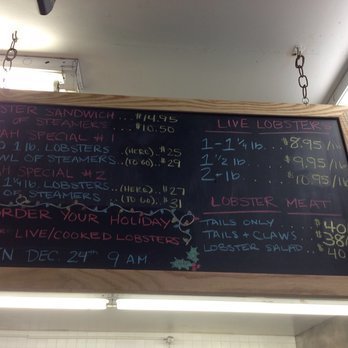 STER SANDWICH ... $14.95
OF STEAMERS ... $10.50
AH SPECIAL #1
1 lb. LOBSTERS ...(HERE). $25
WL OF STEAMERS ...(TO GO). $29
AH SPECIAL #2
1 1/4 lb. LOBSTERS ..(HERE). $27
STEAMERS ...(TO GO). $31
ORDER YOUR HOLIDAY
LIVE/COOKED LOBSTERS
N DEC. 24TH 9 AM
LIVE LOBSTER
1-1 1/4 lb. $8.95/lb
1 1/2 lb. $9.95/lb
2+ lb. $10.95/lb
LOBSTER MEAT
TAILS ONLY ... $40
TAILS + CLAWS.. $38
LOBSTER SALAD.. $40